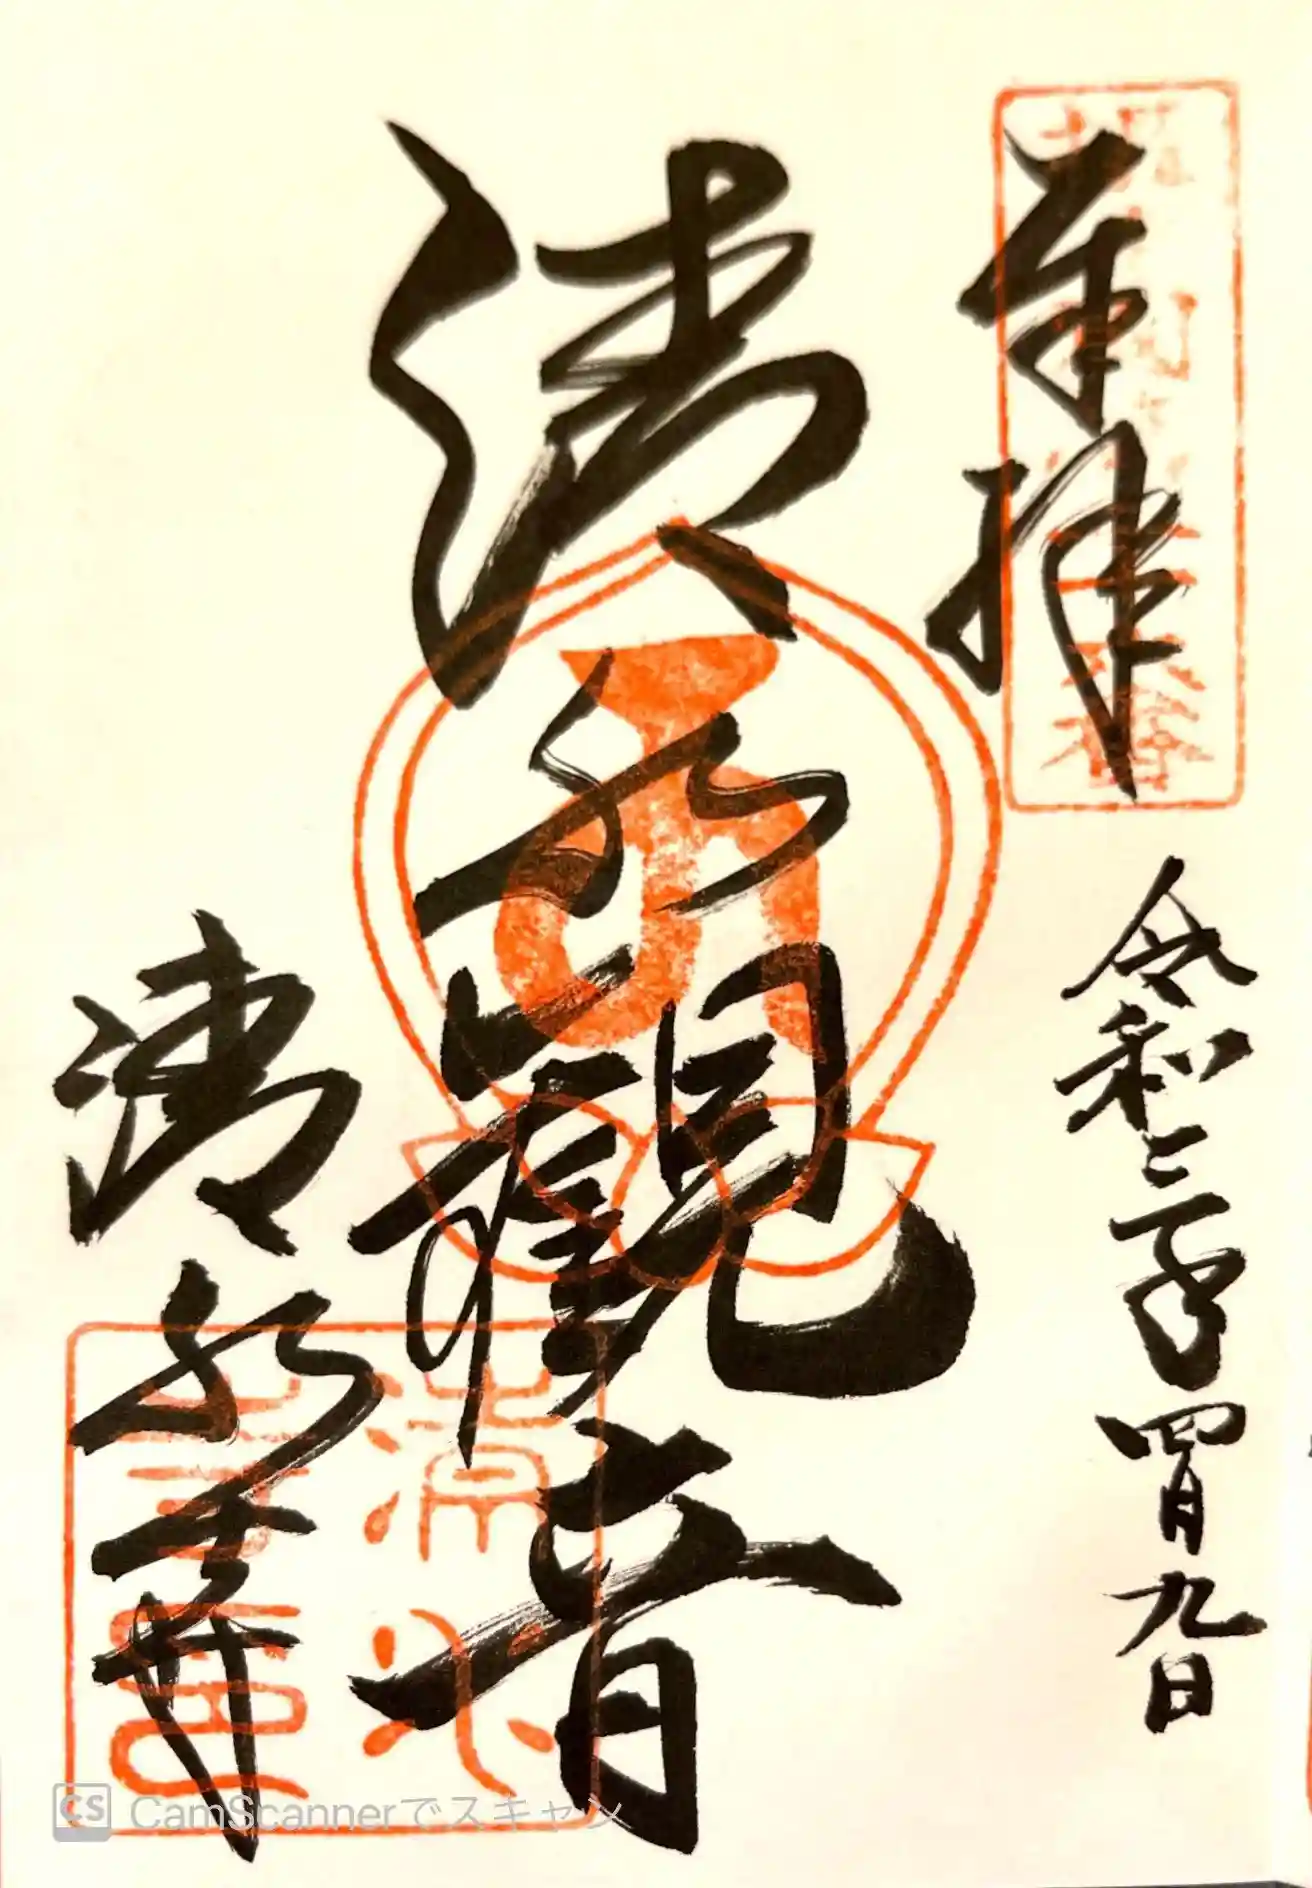 奉拝
令和三年四月九日
清水観音
清水寺
清水寺印
CS CamScannerでスキャン